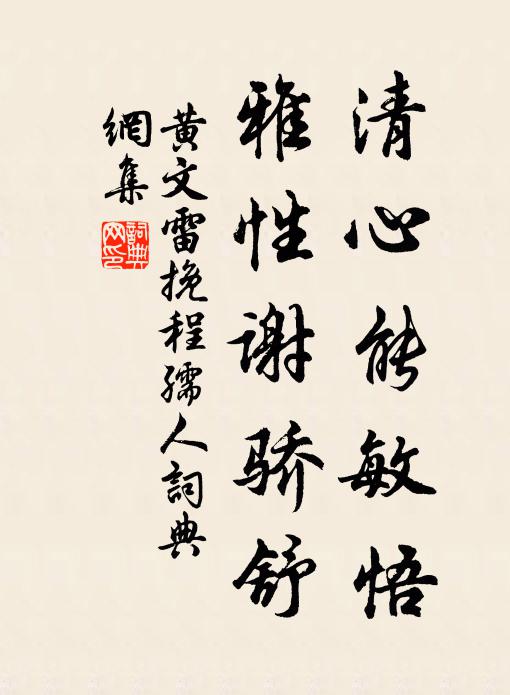 清心能敏悟
雅性谢骄舒
黄文雷挽程孺人詞典
網集
詞典
网印